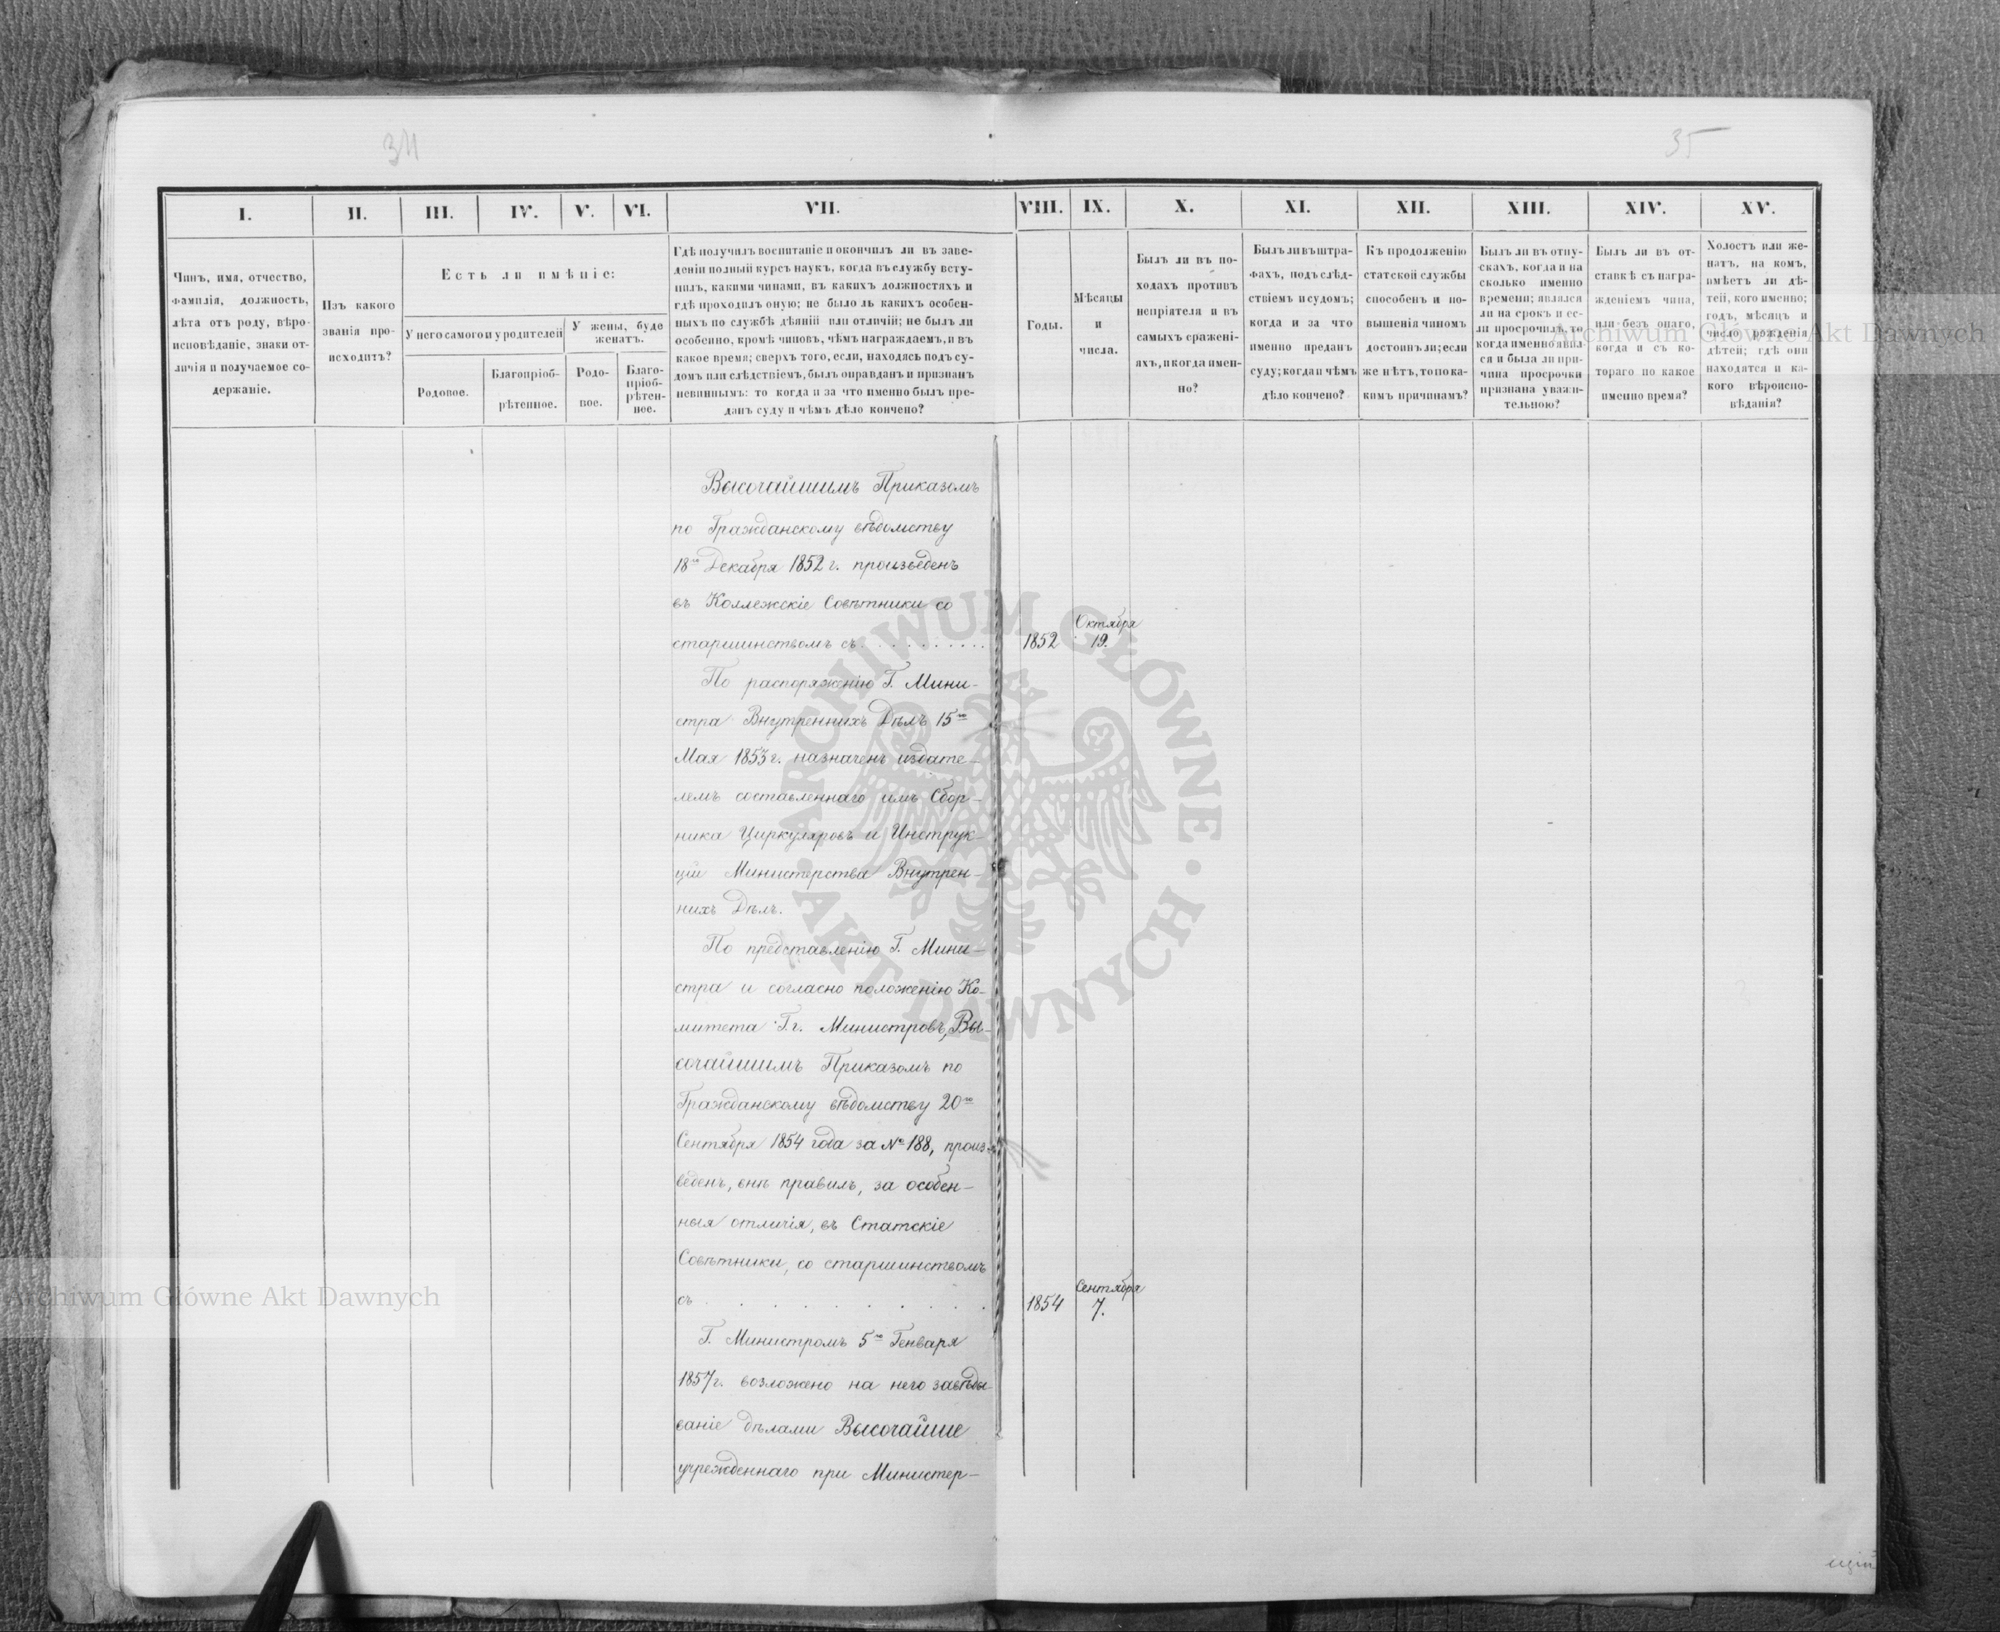 34
35
I.
II.
III.
IV.
V.
VI.
VII.
VIII.
IX.
X.
XI.
XII.
XIII.
XIV.
XV.
Чинъ, имя, отчество,
фамилія, должность,
лѣта отъ роду, вѣро-
исповѣданіе, знаки от-
личія и получаемое со-
держаніе.
Изъ какого
званія про-
исходитъ?
Есть ли имѣніе:
У него самого и у родителей
Родовое.
Благопріоб-
рѣтенное.
У жены, буде
женатъ.
Родо-
вое.
Благо-
пріоб-
рѣтен-
ное.
Гдѣ получилъ воспитаніе и окончилъ ли въ заве-
деніи полный курсъ наукъ, когда въ службу всту-
пилъ, какими чинами, въ какихъ должностяхъ и
гдѣ проходилъ оную; не было ль какихъ особен-
ныхъ по службѣ дѣяній или отличій; не былъ ли
особенно, кромѣ чиновъ, чѣмъ награждаемъ, и въ
какое время; сверхъ того, если, находясь подъ су-
домъ или слѣдствіемъ, былъ оправданъ и признанъ
невиннымъ: то когда и за что именно былъ пре-
данъ суду и чѣмъ дѣло кончено?
Годы.
Мѣсяцы
и
числа.
Былъ ли въ по-
ходахъ противъ
непріятеля и въ
самыхъ сражені-
яхъ, и когда имен-
но?
Былъ ли въ штра-
фахъ, подъ слѣд-
ствіемъ и судомъ;
когда и за что
именно преданъ
суду; когда и чѣмъ
дѣло кончено?
Къ продолженію
статской службы
способенъ и по-
вышенія чиномъ
достоинъ ли; если
же нѣтъ, то по ка-
кимъ причинамъ?
Былъ ли въ отпу-
скахъ, когда и на
сколько именно
времени; являлся
ли на срокъ и ес-
ли просрочилъ, то
когда именно явил-
ся и была ли при-
чина просрочки
признана уважи-
тельною?
Былъ ли въ от-
ставкѣ съ награ-
жденіемъ чина,
или безъ онаго,
когда и съ ко-
тораго по какое
именно время?
Холостъ или же-
натъ, на комъ,
имѣетъ ли дѣ-
тей, кого именно;
годъ, мѣсяцъ и
число рожденія
дѣтей; гдѣ они
находятся и ка-
кого вѣроиспо-
вѣданія?
Высочайшимъ Приказомъ
по Гражданскому вѣдомству
18го Декабря 1852 г. произведенъ
въ Коллежскіе Совѣтники со
старшинствомъ съ . . . . . . . . . .
1852
Октября
19.
По распоряженію Г. Мини-
стра Внутреннихъ Дѣлъ 15го
Мая 1853 г. назначенъ издате-
лемъ составленнаго имъ Сбор-
ника Циркуляровъ и Инструк-
цій Министерства Внутрен-
нихъ Дѣлъ.
По представленію Г. Мини-
стра и согласно положенію Ко-
митета Г.г. Министровъ, Вы-
сочайшимъ Приказомъ по
Гражданскому вѣдомству 20го
Сентября 1854 года за № 188, произ-
веденъ, внѣ правилъ, за особен-
ныя отличія, въ Статскіе
Совѣтники, со старшинствомъ
съ . . . . . . . . . .
1854
Сентября
7.
Г. Министромъ 5го Генваря
1857 г. возложено на него завѣды-
ваніе дѣлами Высочайше
учрежденнаго при Министер-
Archiwum Główne Akt Dawnych
Archiwum Główne Akt Dawnych
ARCHIWUM GŁÓWNE · AKT DAWNYCH ·